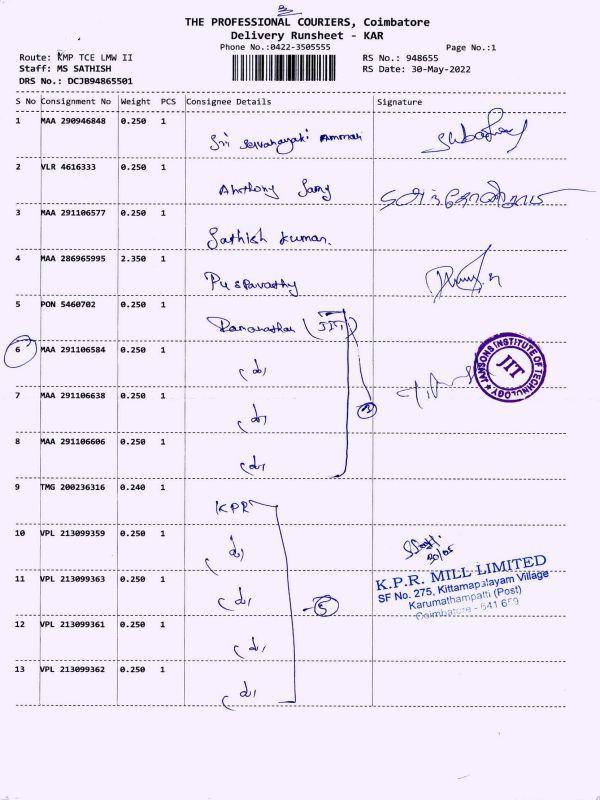 THE PROFESSIONAL COURIERS, Coimbatore
Delivery Runsheet - KAR
Phone No.:0422-3505555
Page No.:1
Route: KMP TCE LMW II
RS No.: 948655
Staff: MS SATHISH
RS Date: 30-May-2022
DRS No.: DCJB94865501
S No Consignment No Weight PCS Consignee Details Signature
1 MAA 290946848 0.250 1 Sri Ammau
2 VLR 4616333 0.250 1 Anthony Samy
3 MAA 291106577 0.250 1 Sathish kumar.
4 MAA 286965995 2.350 1 Puspavathy
5 PON 5460702 0.250 1 (JIT)
6 MAA 291106584 0.250 1 (do)
7 MAA 291106638 0.250 1 (do)
8 MAA 291106606 0.250 1 (do)
9 TMG 200236316 0.240 1 KPR
10 VPL 213099359 0.250 1 (do)
11 VPL 213099363 0.250 1 (do)
12 VPL 213099361 0.250 1 (do)
13 VPL 213099362 0.250 1 (do)
JANSONS INSTITUTE OF TECHNOLOGY
JIT
5
30/05
K.P.R. MILL LIMITED
SF No. 275, Kittampalayam Village
Karumathampatti (Post)
Coimbatore - 641 659